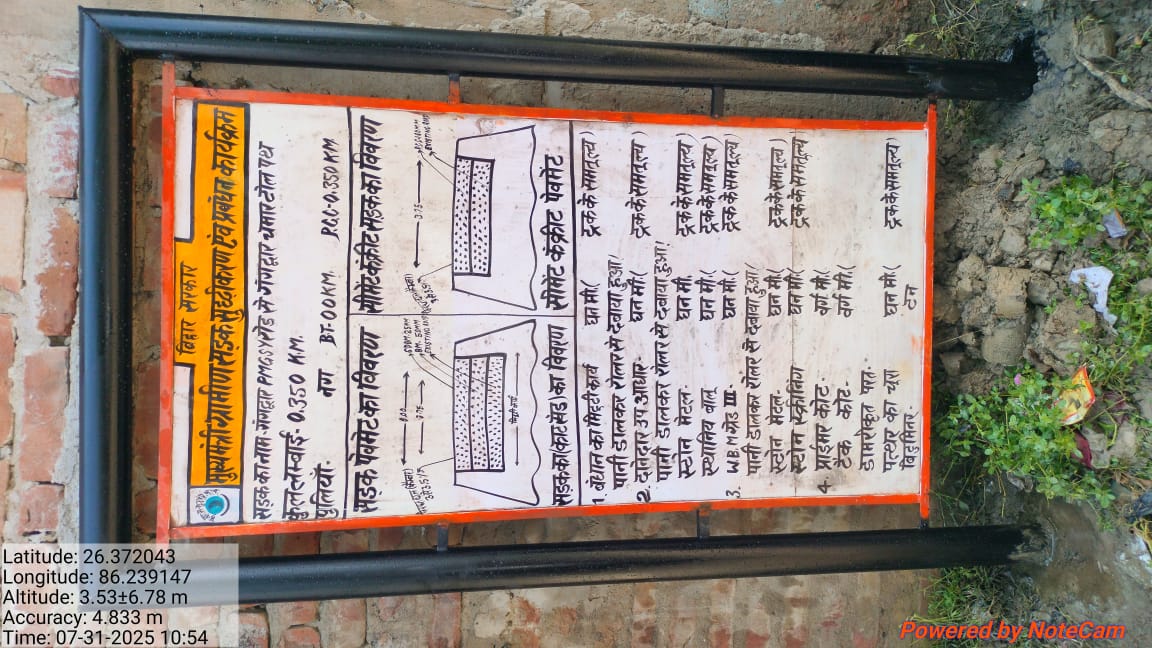 बिहार सरकार
मुख्यमंत्री ग्रामीण सड़क सुदृढ़ीकरण एवं प्रबंधन कार्यक्रम
सड़क का नाम- गंगद्वार PMGSY रोड से गंगद्वार चमार टोल पथ
कुल लम्बाई- 0.350 KM.
पुलियों- नग BT- 00KM. P.C.C-0.350 KM
सड़क पेवमेंट का विवरण
सीमेंट कंक्रीट सड़क का विवरण
3.75
3.75
सड़क की (काट सेड) का विवरण
सीमेंट कंक्रीट पेवमेंट
1. बंधान का मिट्टी कार्य घन मी.( ट्रक के समतूल्य)
पानी डालकर रोलर से दवाया हुआ/
2. दानेदार उप आधार- घन मी.( ट्रक के समतूल्य)
पानी डालकर रोलर से दवाया हुआ/
स्टोन मेटल- घन मी.( ट्रक के समतूल्य)
स्थानिय बालू घन मी.( ट्रक के समतूल्य)
3. W.B.M ग्रेड III- घन मी.( ट्रक के समतूल्य)
पानी डालकर रोलर से दवाया हुआ/
स्टोन मेटल- घन मी.( ट्रक के समतूल्य)
स्टोन स्क्रीनिंग घन मी.( ट्रक के समतूल्य)
4. प्राईमर कोट- वर्ग मी.(
टैक कोट- वर्ग मी.(
डामरीकृत परत-
पत्थर का चूरा घन मी.( ट्रक के समतूल्य)
विटुमिनर- टन
Latitude: 26.372043
Longitude: 86.239147
Altitude: 3.53±6.78 m
Accuracy: 4.833 m
Time: 07-31-2025 10:54
Powered by NoteCam